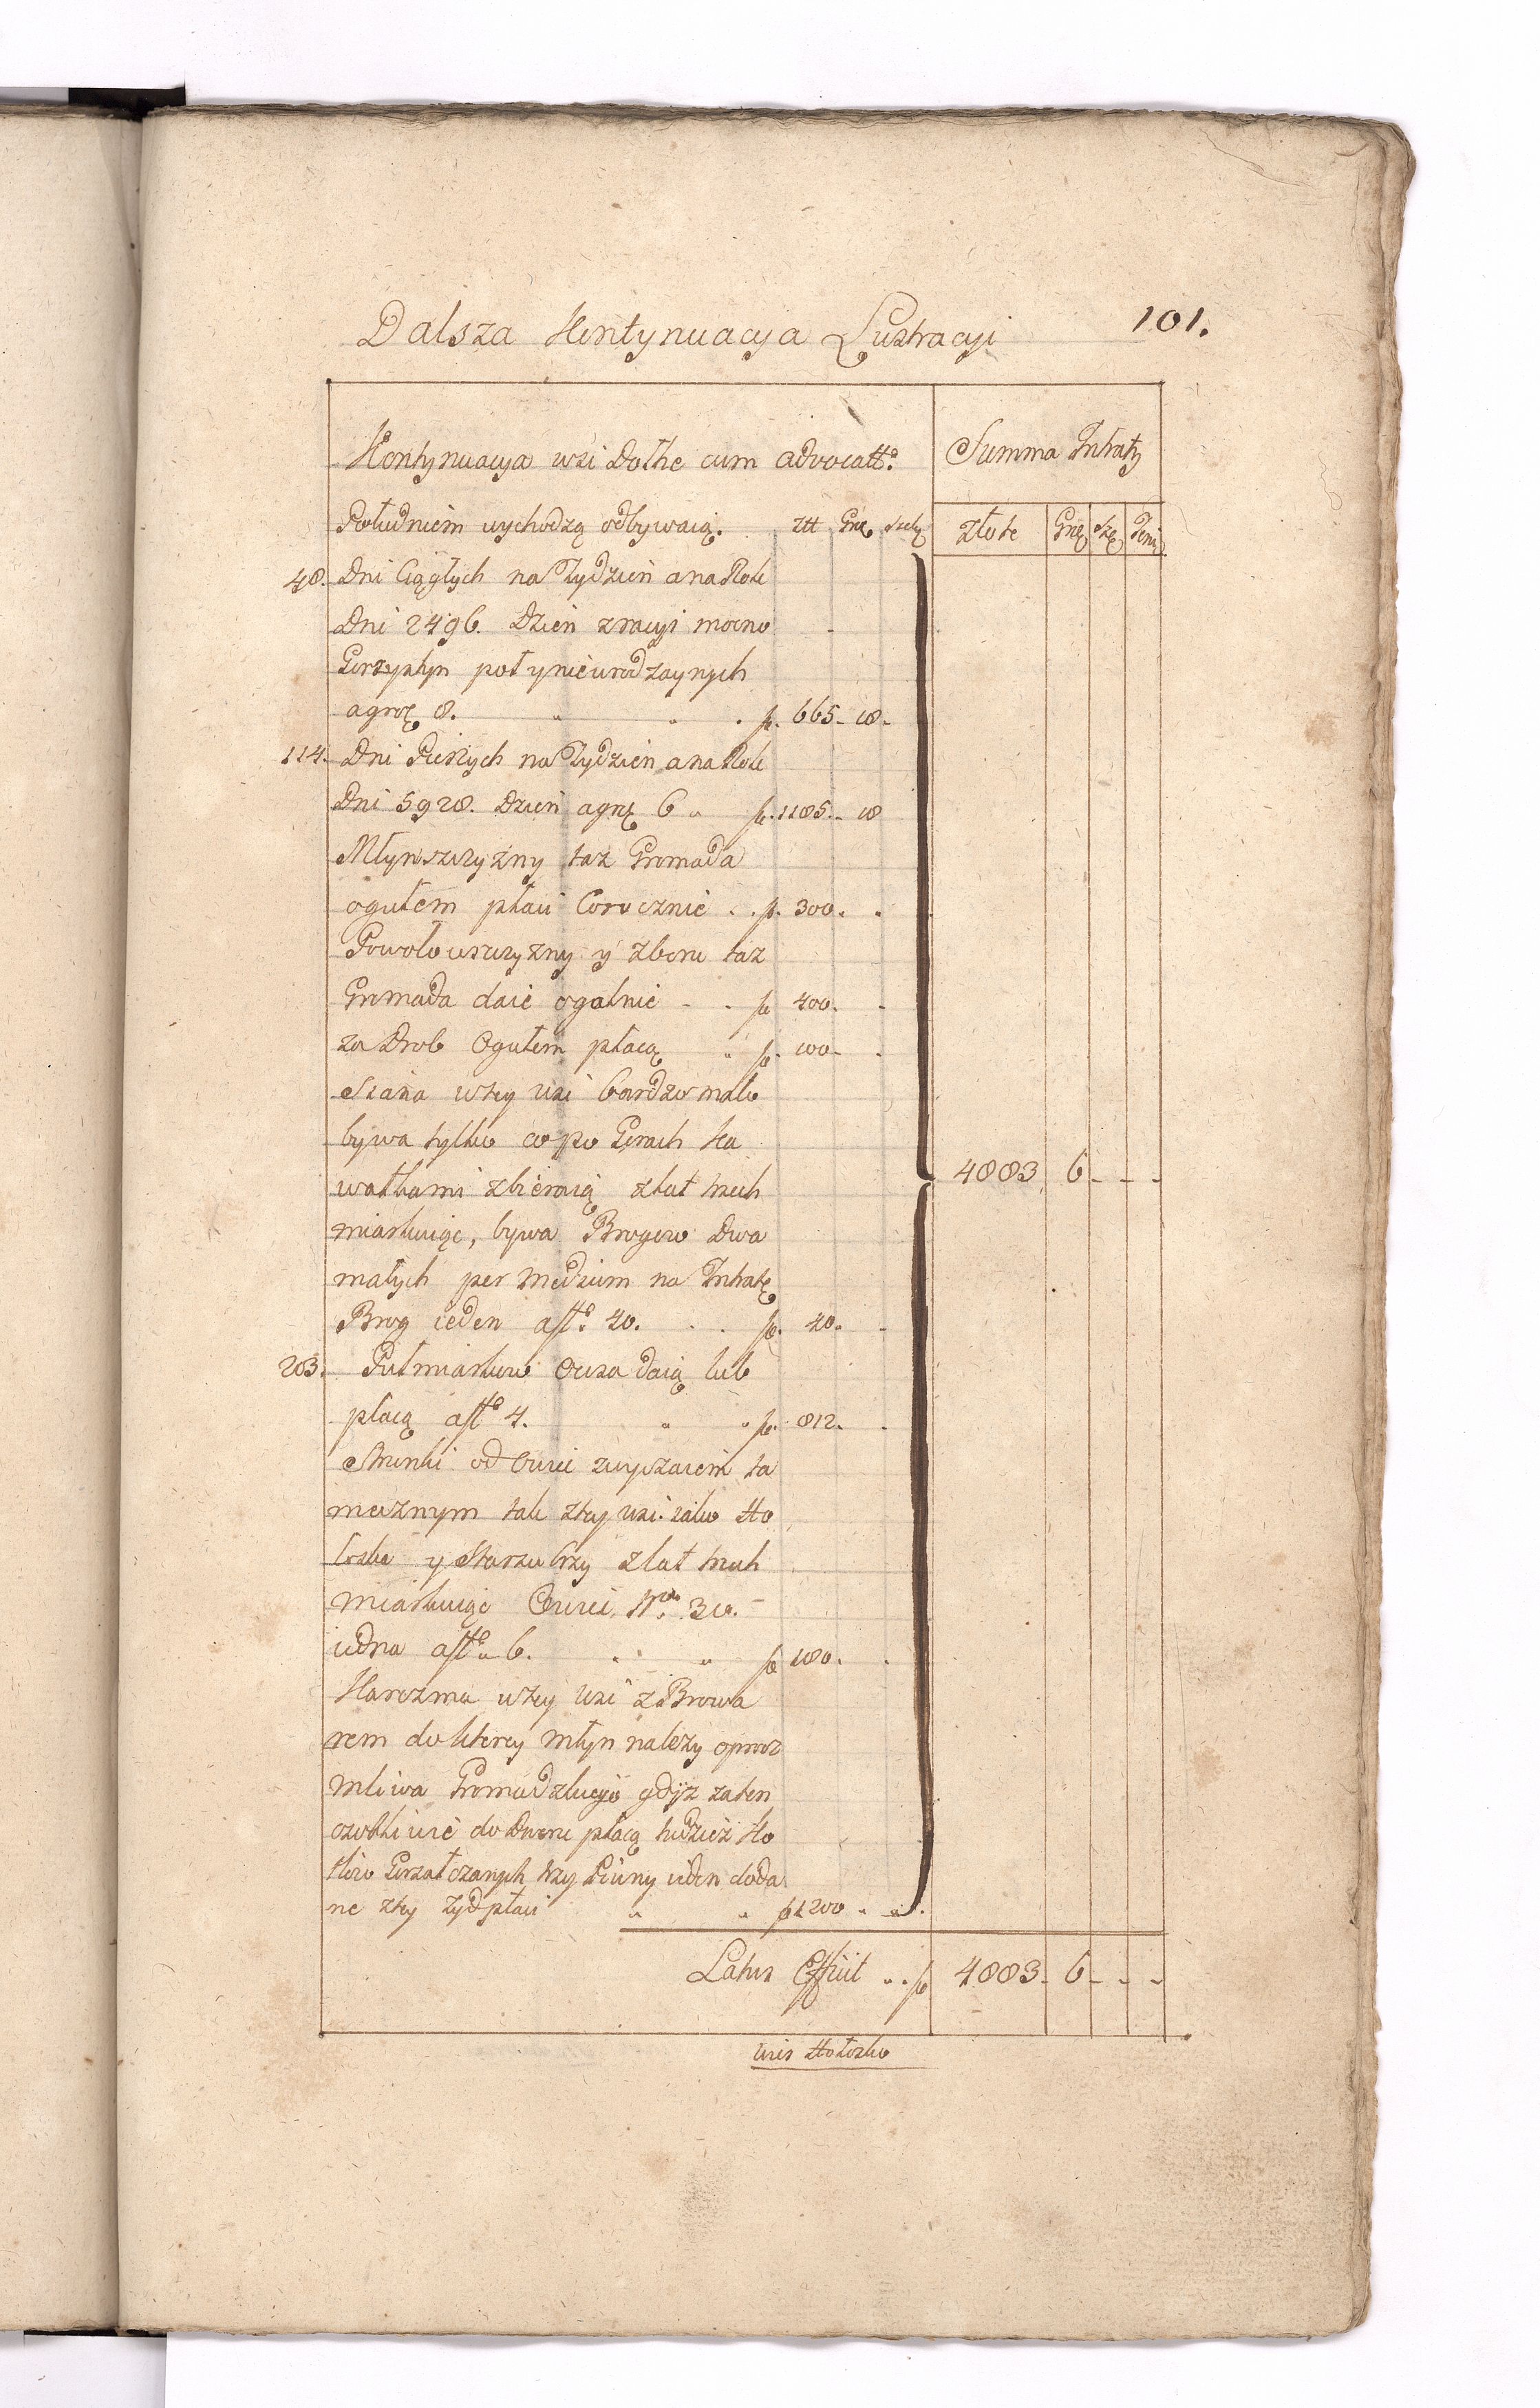 101.
Dalsza Kontynuacya Lustracyi
Kontynuacya wsi Dołhe cum advocatt:
Summa Intraty
Południem wychodzą odbywaią. Złł Grę Szelę
Złote Grę Szę Feni
48. Dni Ciągłych na Tydzień a na Rok
Dni 2496. Dzień z racyi mocno
Gorzystyn poł y nieurodzaynych
a groz 8. " " . f. 665 - 18 -
114. Dni Pieszych na Tydzień a na Rok
Dni 5928. Dzień a grę 6 " f. 1185. - 18
Młynszczyzny taz Gromada
ogułem płaci Corocznie . . f. 300. .
Powołowszczyzny y zboru taz
Gromada daie ogolnie - . f 400. -
za Drob Ogułem płacą " f. 100 - .
Siana w tey wsi bardzo mało
bywa tylko co po Gorach ka
wałkami zbieraią z lat trzech
miarkuiąc, bywa Brogow Dwa
małych per medium na Intratę
Brog ieden a fl: 40. . . f. 40. -
4883 6 - - -
203. Pułmiarkow Owsa daią lub
płacą a fl 4. " " f. 812. -
Strunki od Owiec zwyczaiem ta
mecznym tak z tey wsi iako Ho
łoska y Starzu brzy z lat trzech
miarkuiąc Owiec Nro 30. -
iedna a fl " 6. " " f 180. .
Karczma w tey wsi z Browa
rem do ktorey młyn nalezy oprocz
mliwa Gromadzkiego gdyz za ten
osobliwie do Dworu płacą tudziez Ko
tłow Gorzałczanych trzy Piwny ieden doda
ne z tey Zyd płaci " " f 1200 " " .
Latus Effiit " . f 4883 - 6 - - -
Wies Hołosko